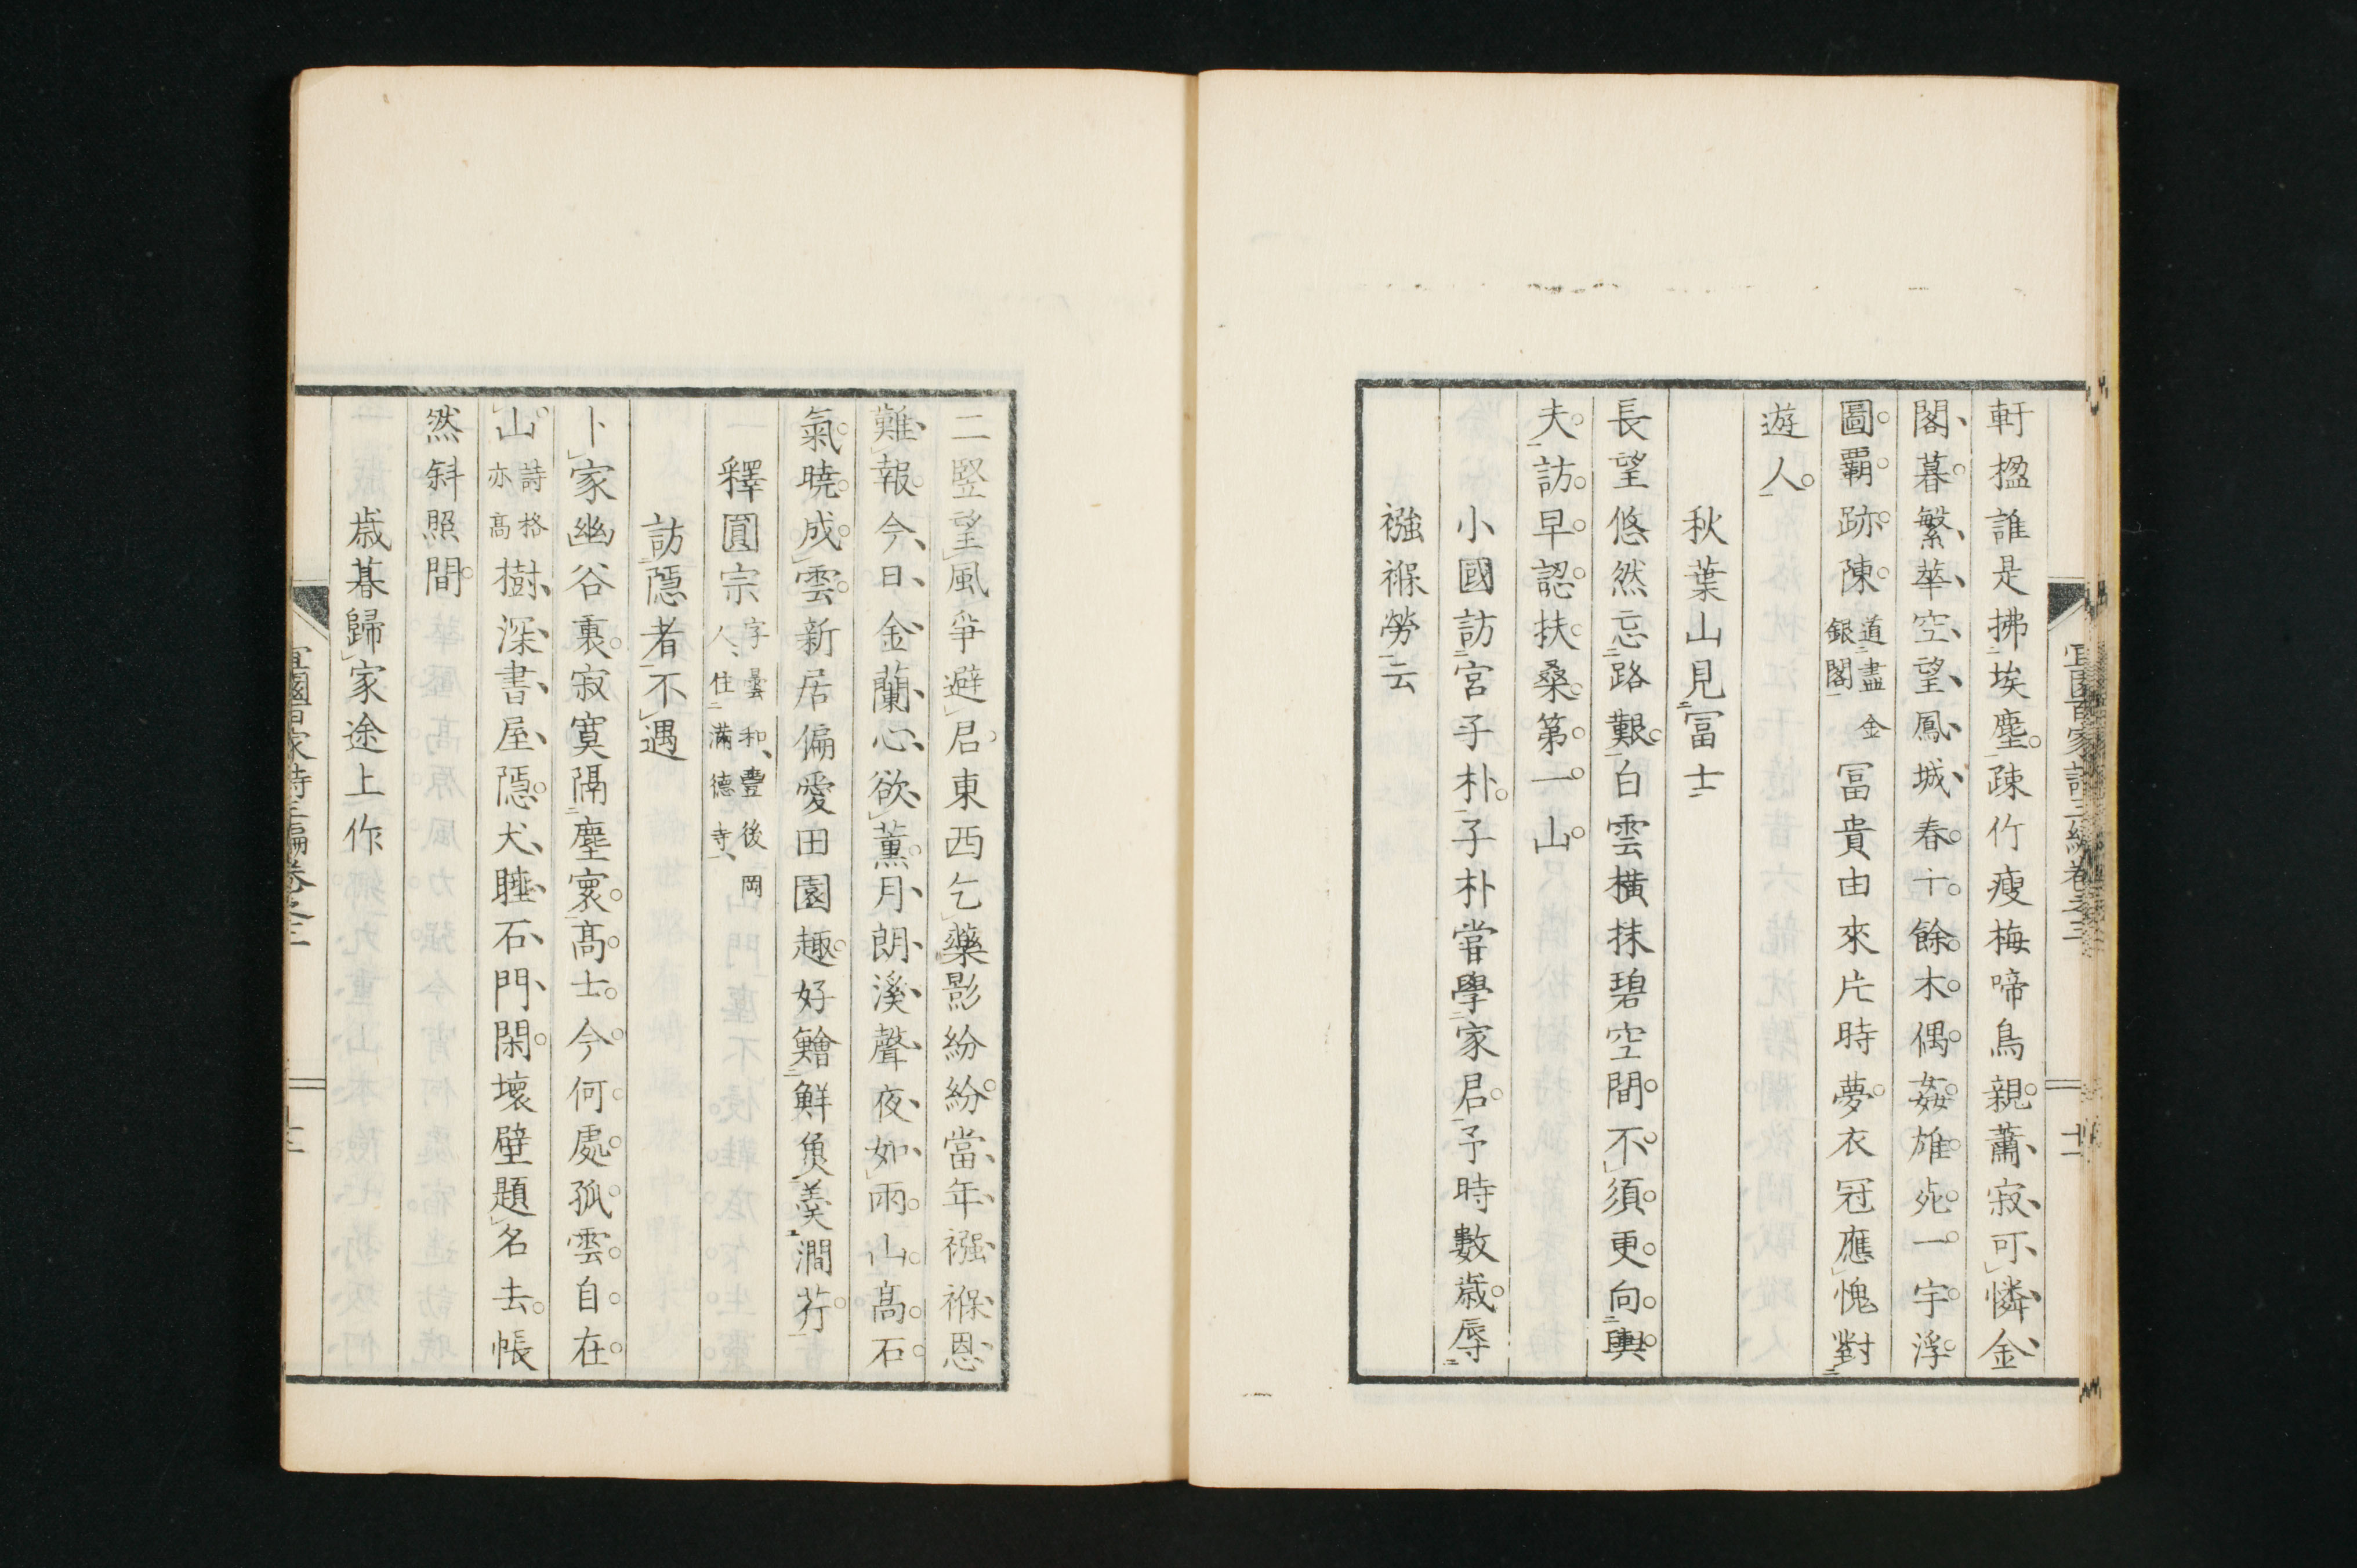 軒楹誰是拂埃塵疎竹瘦梅啼鳥親蕭寂可憐金
閣暮繁華空望鳳城春十餘木偶姦雄死一宇浮
圖霸跡陳道盡金銀閣冨貴由來片時夢衣冠應愧對
遊人
秋葉山見冨士
長望悠然忘路艱白雲橫抹碧空間不須更向輿
夫訪早認扶桑第一山
小國訪宮子朴子朴嘗學家君予時數歳辱
襁褓勞云
二竪望風爭避君東西乞藥影紛紛當年襁褓恩
難報今日金蘭心欲薰月朗溪聲夜如雨山髙石
氣曉成雲新居偏愛田園趣好鱠鮮魚羹澗芹
釋圓宗字曇和豐後岡人住滿德寺
訪隱者不遇
卜家幽谷裏寂寞隔塵寰髙士今何處孤雲自在
山詩格亦髙樹深書屋隱犬睡石門閑壞壁題名去悵
然斜照間
歳暮歸家途上作
宜園百家詩三編卷之三